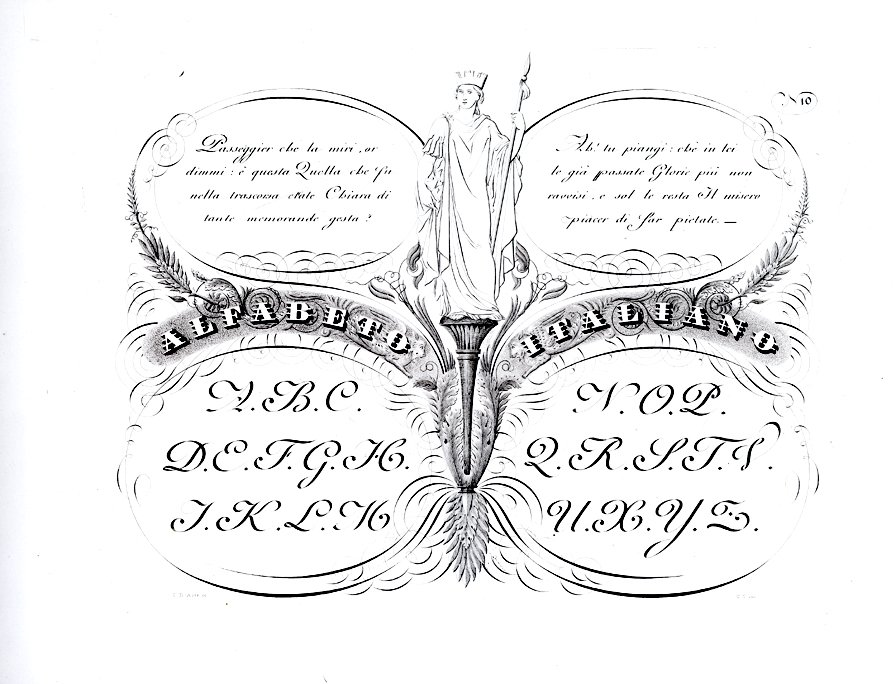 N 10
Passeggier che la miri, or
dimmi: è questa Quella che fu
nella trascorsa etate Chiara di
tante memorande gesta?
Ah! tu piangi: chè in lei
le già passate Glorie più non
ravvisi, e sol le resta Il misero
piacer di far pietate. —
ALFABETO ITALIANO
A.B.C.
D.E.F.G.H.
I.K.L.M
N.O.P.
Q.R.S.T.V.
U.X.Y.Z.